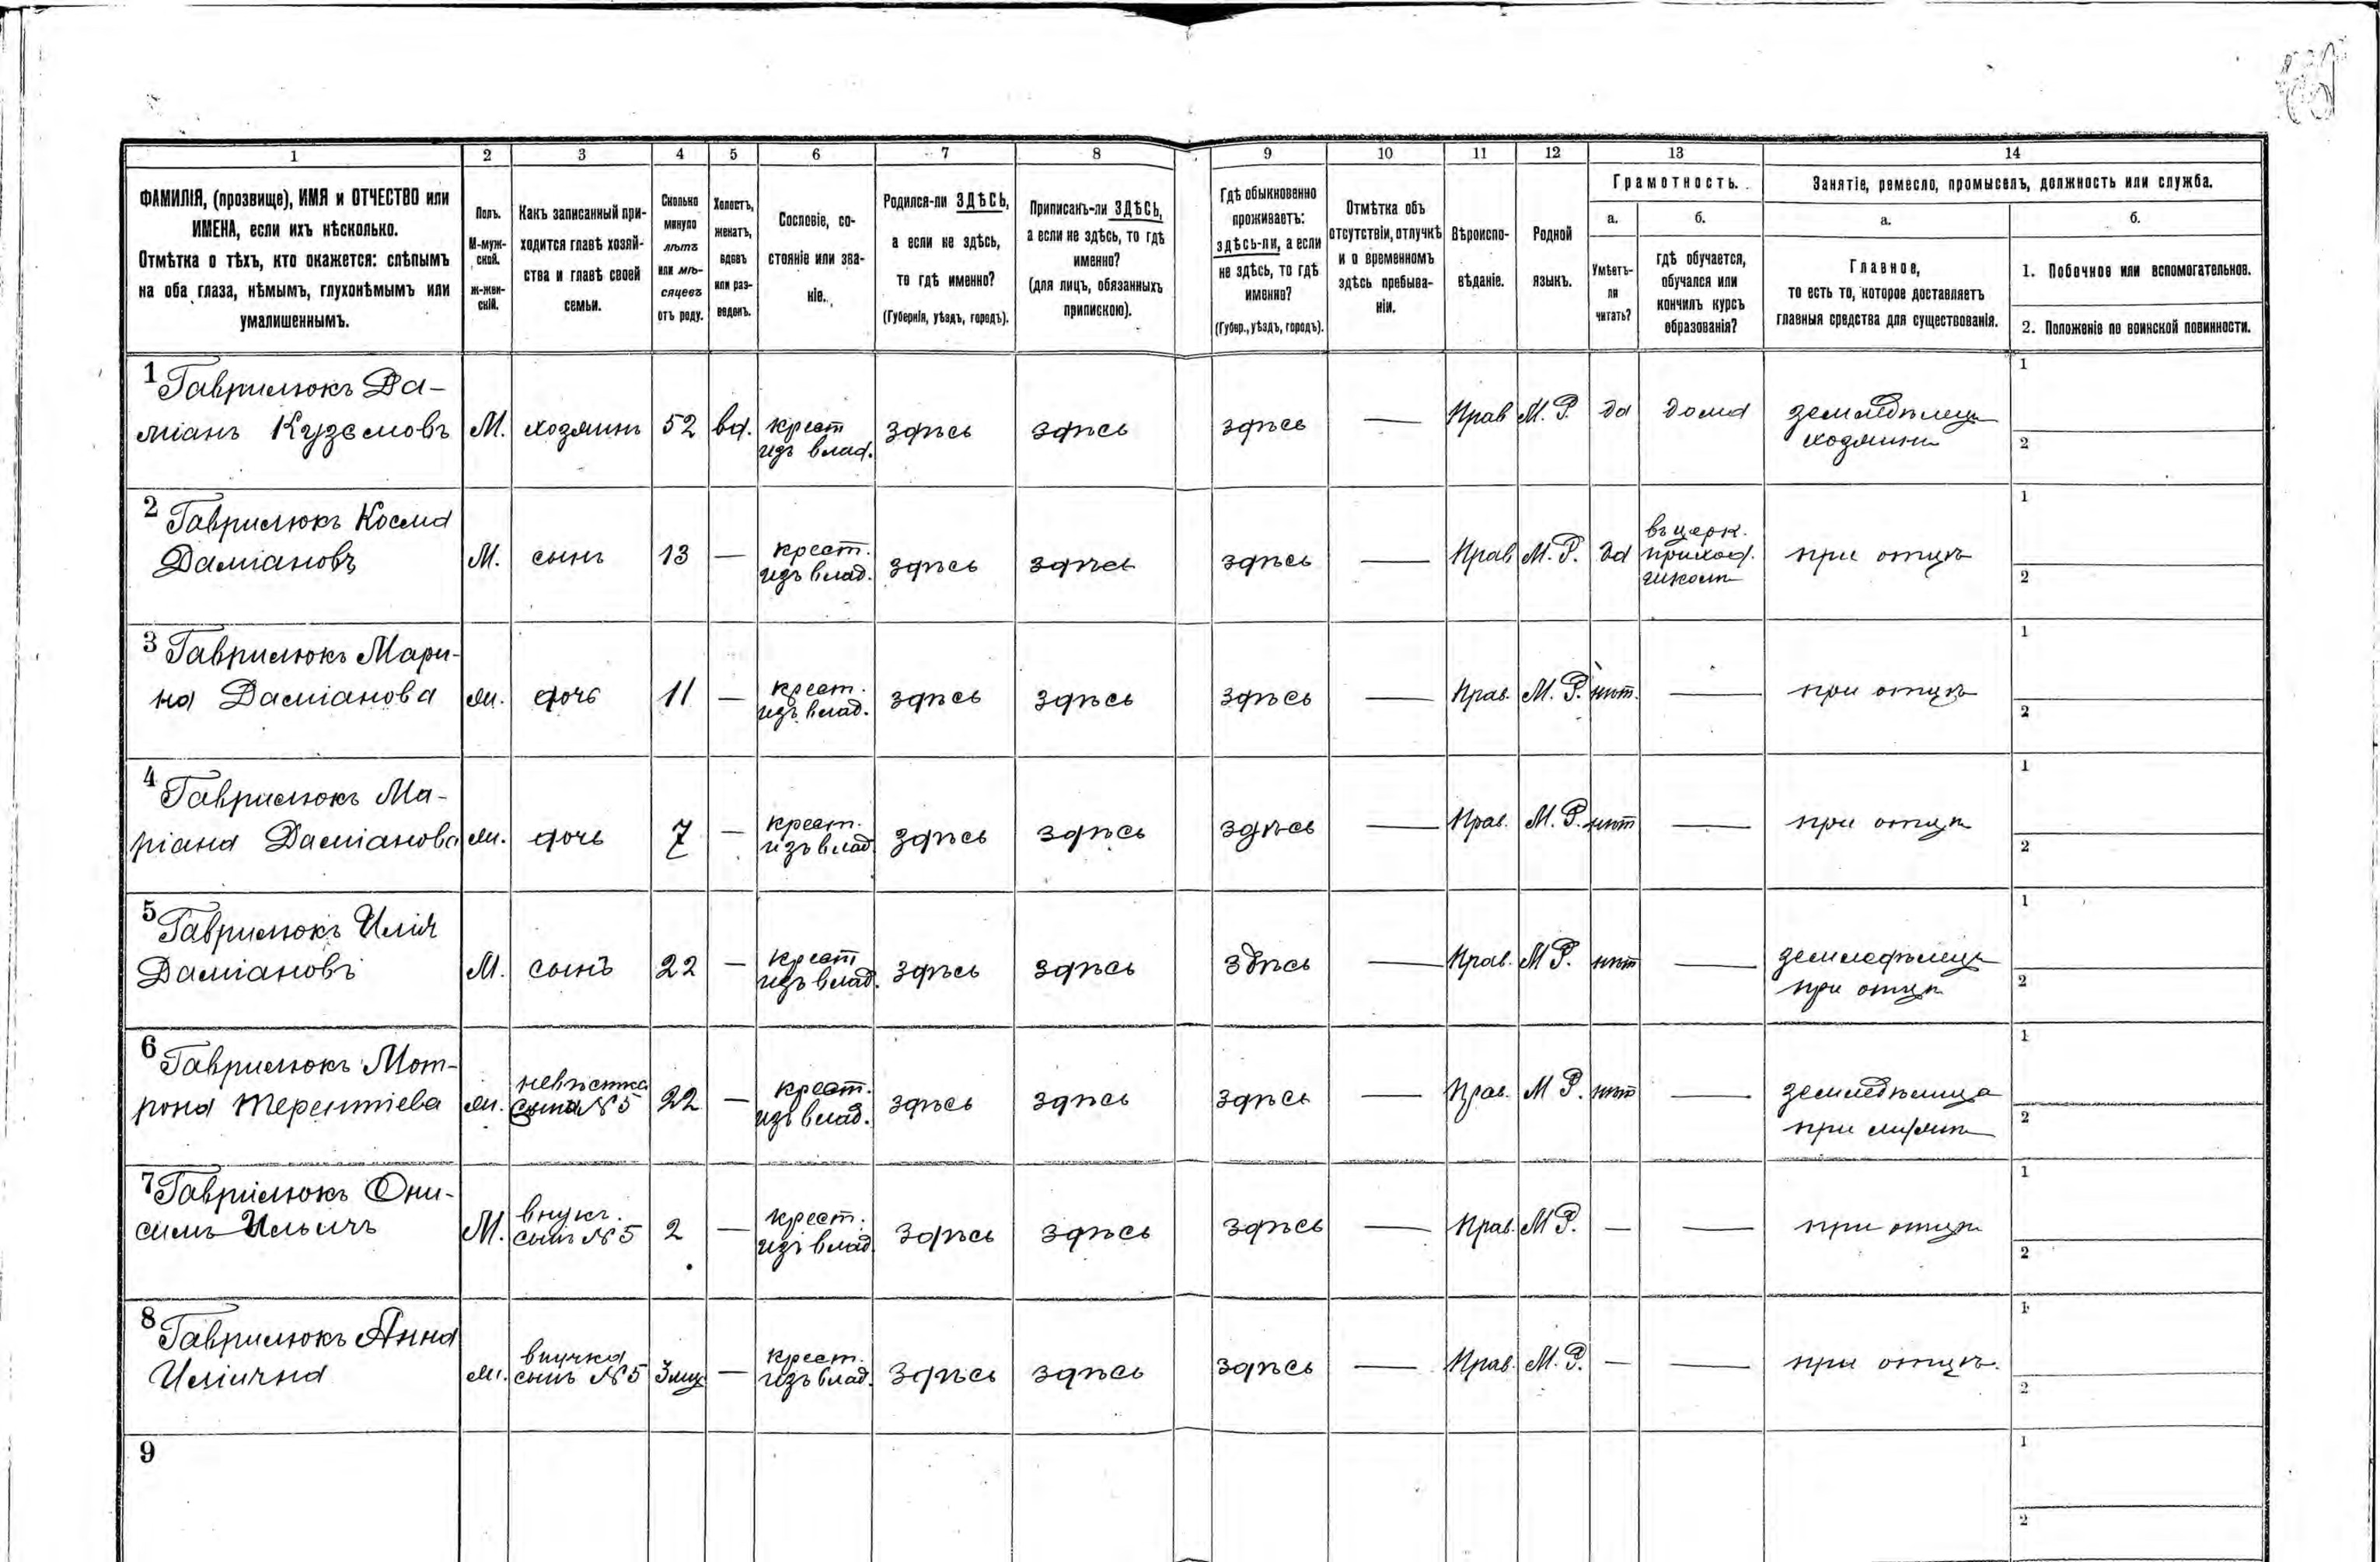 1 2 3 4 5 6 7 8 9 10 11 12 13 14
ФАМИЛІЯ, (прозвище), ИМЯ и ОТЧЕСТВО или
ИМЕНА, если ихъ нѣсколько.
Отмѣтка о тѣхъ, кто окажется: слѣпымъ
на оба глаза, нѣмымъ, глухонѣмымъ или
умалишеннымъ.
Полъ.
М-муж-
ской.
ж-жен-
скій.
Какъ записанный при-
ходится главѣ хозяй-
ства и главѣ своей
семьи.
Сколько
минуло
лѣтъ
или мѣ-
сяцевъ
отъ роду.
Холостъ,
женатъ,
вдовъ
или раз-
веденъ.
Сословіе, со-
стояніе или зва-
ніе.
Родился-ли ЗДѢСЬ,
а если не здѣсь,
то гдѣ именно?
(Губернія, уѣздъ, городъ).
Приписанъ-ли ЗДѢСЬ,
а если не здѣсь, то гдѣ
именно?
(для лицъ, обязанныхъ
припискою).
Гдѣ обыкновенно
проживаетъ:
здѣсь-ли, а если
не здѣсь, то гдѣ
именно?
(Губер., уѣздъ, городъ).
Отмѣтка объ
отсутствіи, отлучкѣ
и о временномъ
здѣсь пребыва-
ніи.
Вѣроиспо-
вѣданіе.
Родной
языкъ.
Грамотность.
а.
Умѣетъ-
ли
читать?
б.
гдѣ обучается,
обучался или
кончилъ курсъ
образованія?
Занятіе, ремесло, промыселъ, должность или служба.
а.
Главное,
то есть то, которое доставляетъ
главныя средства для существованія.
б.
1. Побочное или вспомогательное.
2. Положеніе по воинской повинности.
1 Гаврилюкъ Да-
міанъ Куземовъ
М.
хозяинъ
52
вд.
крест
изъ влад.
здѣсь
здѣсь
здѣсь
—
Прав
М. Р.
да
дома
земледѣлец
хозяинъ
1
2
2 Гаврилюкъ Косма
Даміановъ
М.
сынъ
13
—
крест.
изъ влад.
здѣсь
здѣсь
здѣсь
—
Прав
М. Р.
да
въ церк.
приход.
школѣ
при отцѣ
1
2
3 Гаврилюкъ Мари-
на Даміанова
ж.
дочь
11
—
крест.
изъ влад.
здѣсь
здѣсь
здѣсь
—
Прав.
М. Р.
нѣт.
—
при отцѣ
1
2
4 Гаврилюкъ Ма-
ріана Даміанова
ж.
дочь
7
—
крест.
изъ влад
здѣсь
здѣсь
здѣсь
—
Прав.
М. Р.
нѣт
—
при отцѣ
1
2
5 Гаврилюкъ Илія
Даміановъ
М.
сынъ
22
—
крест
изъ влад.
здѣсь
здѣсь
здѣсь
—
Прав.
М Р.
нѣт
—
земледѣлец
при отцѣ
1
2
6 Гаврилюкъ Мот-
рона Терентіева
ж.
невѣстка
сына №5
22
—
крест.
изъ влад.
здѣсь
здѣсь
здѣсь
—
Прав.
М Р.
нѣт
—
земледѣлица
при мужѣ
1
2
7 Гаврілюкъ Они-
симъ Ильичъ
М.
внукъ.
сынъ №5
2
—
крест.
изъ влад
здѣсь
здѣсь
здѣсь
—
Прав.
М Р.
—
—
при отцѣ
1
2
8 Гаврилюкъ Анна
Илінична
ж.
внучка
сынъ №5
3 мц
—
крест.
изъ влад.
здѣсь
здѣсь
здѣсь
—
Прав.
М. Р.
—
—
при отцѣ.
1
2
9
1
2